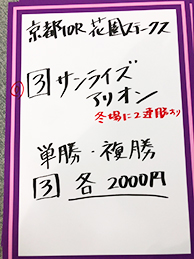 京都10R 花園ステークス
① 3 サンライズ
アリオン
冬場に2連勝あり
単勝・複勝
3 各 2000円